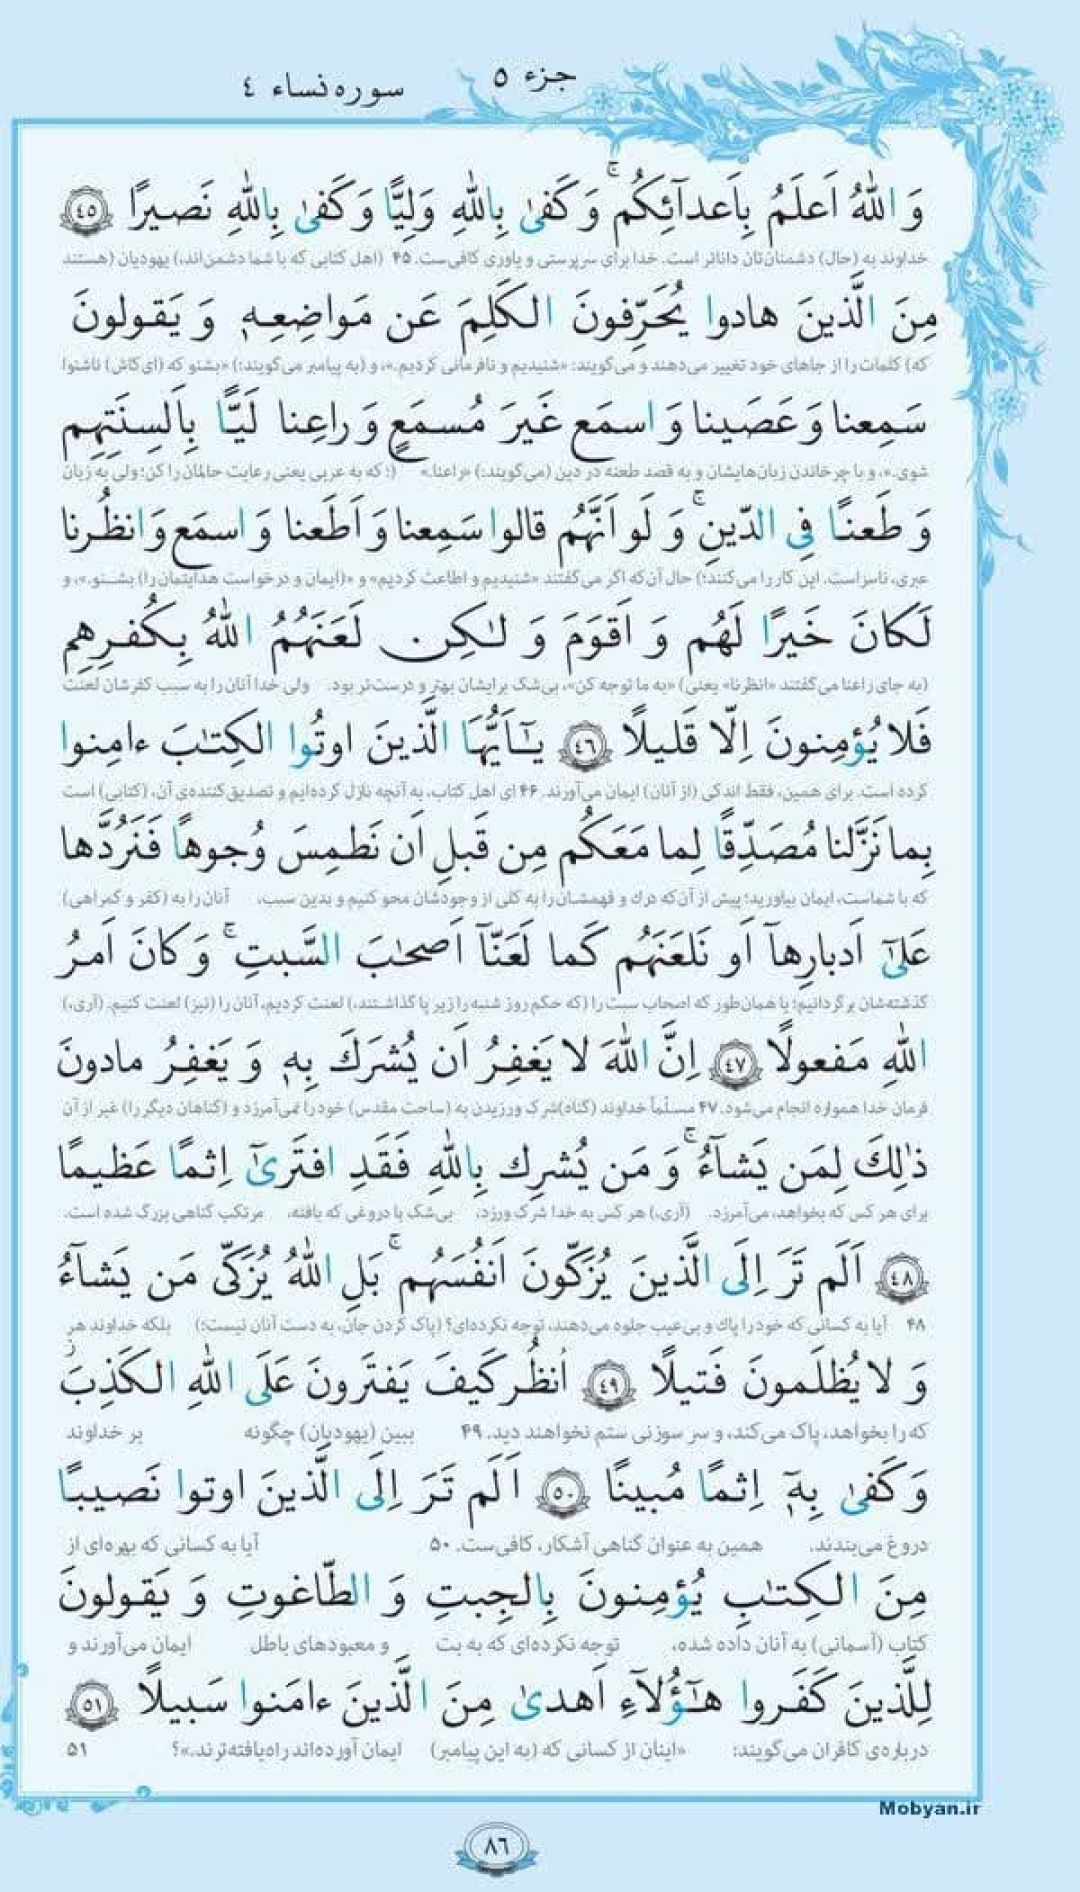 جزء ۵
سوره نساء ٤
وَ اللّٰهُ اَعلَمُ بِاَعدآئِكُم ۚ وَ كَفىٰ بِاللّٰهِ وَلِيًّا وَ كَفىٰ بِاللّٰهِ نَصيرًا ٤٥
خداوند به (حال) دشمنان‌تان داناتر است. خدا برای سرپرستی و یاوری کافی‌ست. ۴۵ (اهل کتابی که با شما دشمن‌اند،) یهودیان (هستند
مِنَ الَّذينَ هادوا يُحَرِّفونَ الكَلِمَ عَن مَواضِعِهٖ وَ يَقولونَ
که) کلمات را از جاهای خود تغییر می‌دهند و می‌گویند: «شنیدیم و نافرمانی کردیم.»، و (به پیامبر می‌گویند:) «بشنو که (ای کاش) ناشنوا
سَمِعنا وَ عَصَينا وَ اسمَع غَيرَ مُسمَعٍ وَ راعِنا لَيًّا بِاَلسِنَتِهِم
شوی.»، و با چرخاندن زبان‌هایشان و به قصد طعنه در دین (می‌گویند:) «راعنا.» (؛ که به عربی یعنی رعایت حالمان را کن؛ ولی به زبان
وَ طَعنًا فِى الدّينِ ۚ وَ لَو اَنَّهُم قالوا سَمِعنا وَ اَطَعنا وَ اسمَع وَ انظُرنا
عبری، ناسزاست. این کار را می‌کنند؛) حال آن‌که اگر می‌گفتند «شنیدیم و اطاعت کردیم» و «(ایمان و درخواست هدایتمان را) بشنو.»، و
لَكانَ خَيرًا لَهُم وَ اَقوَمَ وَ لٰكِن لَعَنَهُمُ اللّٰهُ بِكُفرِهِم
(به جای راعنا می‌گفتند «انظرنا» یعنی) «به ما توجه کن»، بی‌شک برایشان بهتر و درست‌تر بود. ولی خدا آنان را به سبب کفرشان لعنت
فَلا يُؤمِنونَ اِلّا قَليلًا ٤٦ يٰٓاَيُّهَا الَّذينَ اوتُوا الكِتٰبَ ءامِنوا
کرده است. برای همین، فقط اندکی (از آنان) ایمان می‌آورند. ۴۶ ای اهل کتاب، به آنچه نازل کرده‌ایم و تصدیق‌کننده‌ی آن، (کتابی) است
بِما نَزَّلنا مُصَدِّقًا لِما مَعَكُم مِن قَبلِ اَن نَطمِسَ وُجوهًا فَنَرُدَّها
که با شماست، ایمان بیاورید؛ پیش از آن‌که درك و فهمشان را به کلی از وجودشان محو کنیم و بدین سبب، آنان را به (کفر و گمراهی)
عَلىٰٓ اَدبارِهآ اَو نَلعَنَهُم كَما لَعَنّآ اَصحٰبَ السَّبتِ ۚ وَ كانَ اَمرُ
گذشته‌شان برگردانیم؛ یا همان‌طور که اصحاب سبت را (که حکم روز شنبه را زیر پا گذاشتند،) لعنت کردیم، آنان را (نیز) لعنت کنیم. (آری،)
اللّٰهِ مَفعولًا ٤٧ اِنَّ اللّٰهَ لا يَغفِرُ اَن يُشرَكَ بِهٖ وَ يَغفِرُ مادونَ
فرمان خدا همواره انجام می‌شود. ۴۷ مسلّماً خداوند (گناه) شرک ورزیدن به (ساحت مقدس) خود را نمی‌آمرزد و (گناهان دیگر را) غیر از آن
ذٰلِكَ لِمَن يَشآءُ ۚ وَ مَن يُشرِك بِاللّٰهِ فَقَدِ افتَرىٰٓ اِثمًا عَظيمًا
برای هر کس که بخواهد، می‌آمرزد. (آری،) هر کس به خدا شرک ورزد، بی‌شک با دروغی که بافته، مرتکب گناهی بزرگ شده است.
٤٨ اَلَم تَرَ اِلَى الَّذينَ يُزَكّونَ اَنفُسَهُم ۚ بَلِ اللّٰهُ يُزَكّى مَن يَشآءُ
۴۸ آیا به کسانی که خود را پاك و بی‌عیب جلوه می‌دهند، توجه نکرده‌ای؟ (پاک کردن جان، به دست آنان نیست؛) بلکه خداوند هر
وَ لا يُظلَمونَ فَتيلًا ٤٩ اُنظُر كَيفَ يَفتَرونَ عَلَى اللّٰهِ الكَذِبَ ۖ
که را بخواهد، پاک می‌کند، و سر سوزنی ستم نخواهند دید. ۴۹ ببین (یهودیان) چگونه بر خداوند
وَ كَفىٰ بِهٖٓ اِثمًا مُبينًا ٥٠ اَلَم تَرَ اِلَى الَّذينَ اوتوا نَصيبًا
دروغ می‌بندند. همین به عنوان گناهی آشکار، کافی‌ست. ۵۰ آیا به کسانی که بهره‌ای از
مِنَ الكِتٰبِ يُؤمِنونَ بِالجِبتِ وَ الطّاغوتِ وَ يَقولونَ
کتاب (آسمانی) به آنان داده شده، توجه نکرده‌ای که به بت و معبودهای باطل ایمان می‌آورند و
لِلَّذينَ كَفَروا هٰٓؤُلآءِ اَهدىٰ مِنَ الَّذينَ ءامَنوا سَبيلًا ٥١
درباره‌ی کافران می‌گویند: «اینان از کسانی که (به این پیامبر) ایمان آورده‌اند راه‌یافته‌ترند.»؟ ۵۱
Mobyan.ir
۸۶